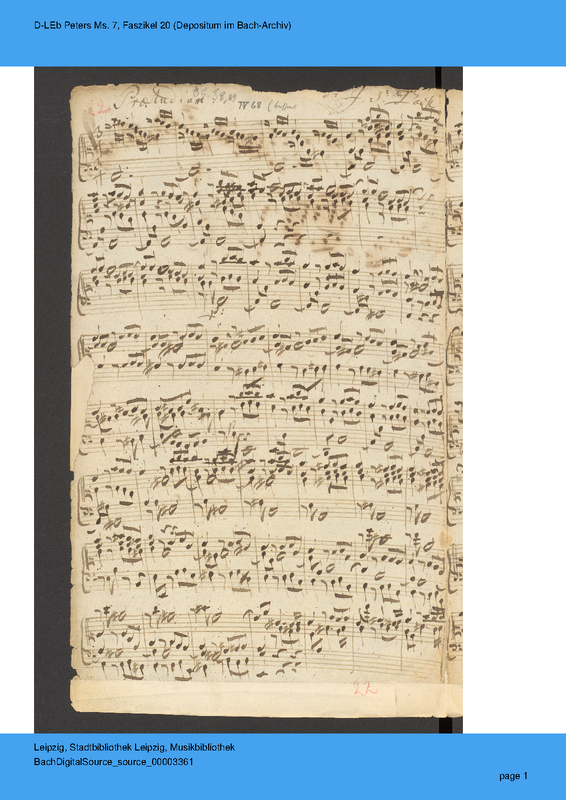 D-LEb Peters Ms. 7, Faszikel 20 (Depositum im Bach-Archiv)
22 Præludium
J. S. Bach
22
Leipzig, Stadtbibliothek Leipzig, Musikbibliothek
BachDigitalSource_source_00003361
page 1